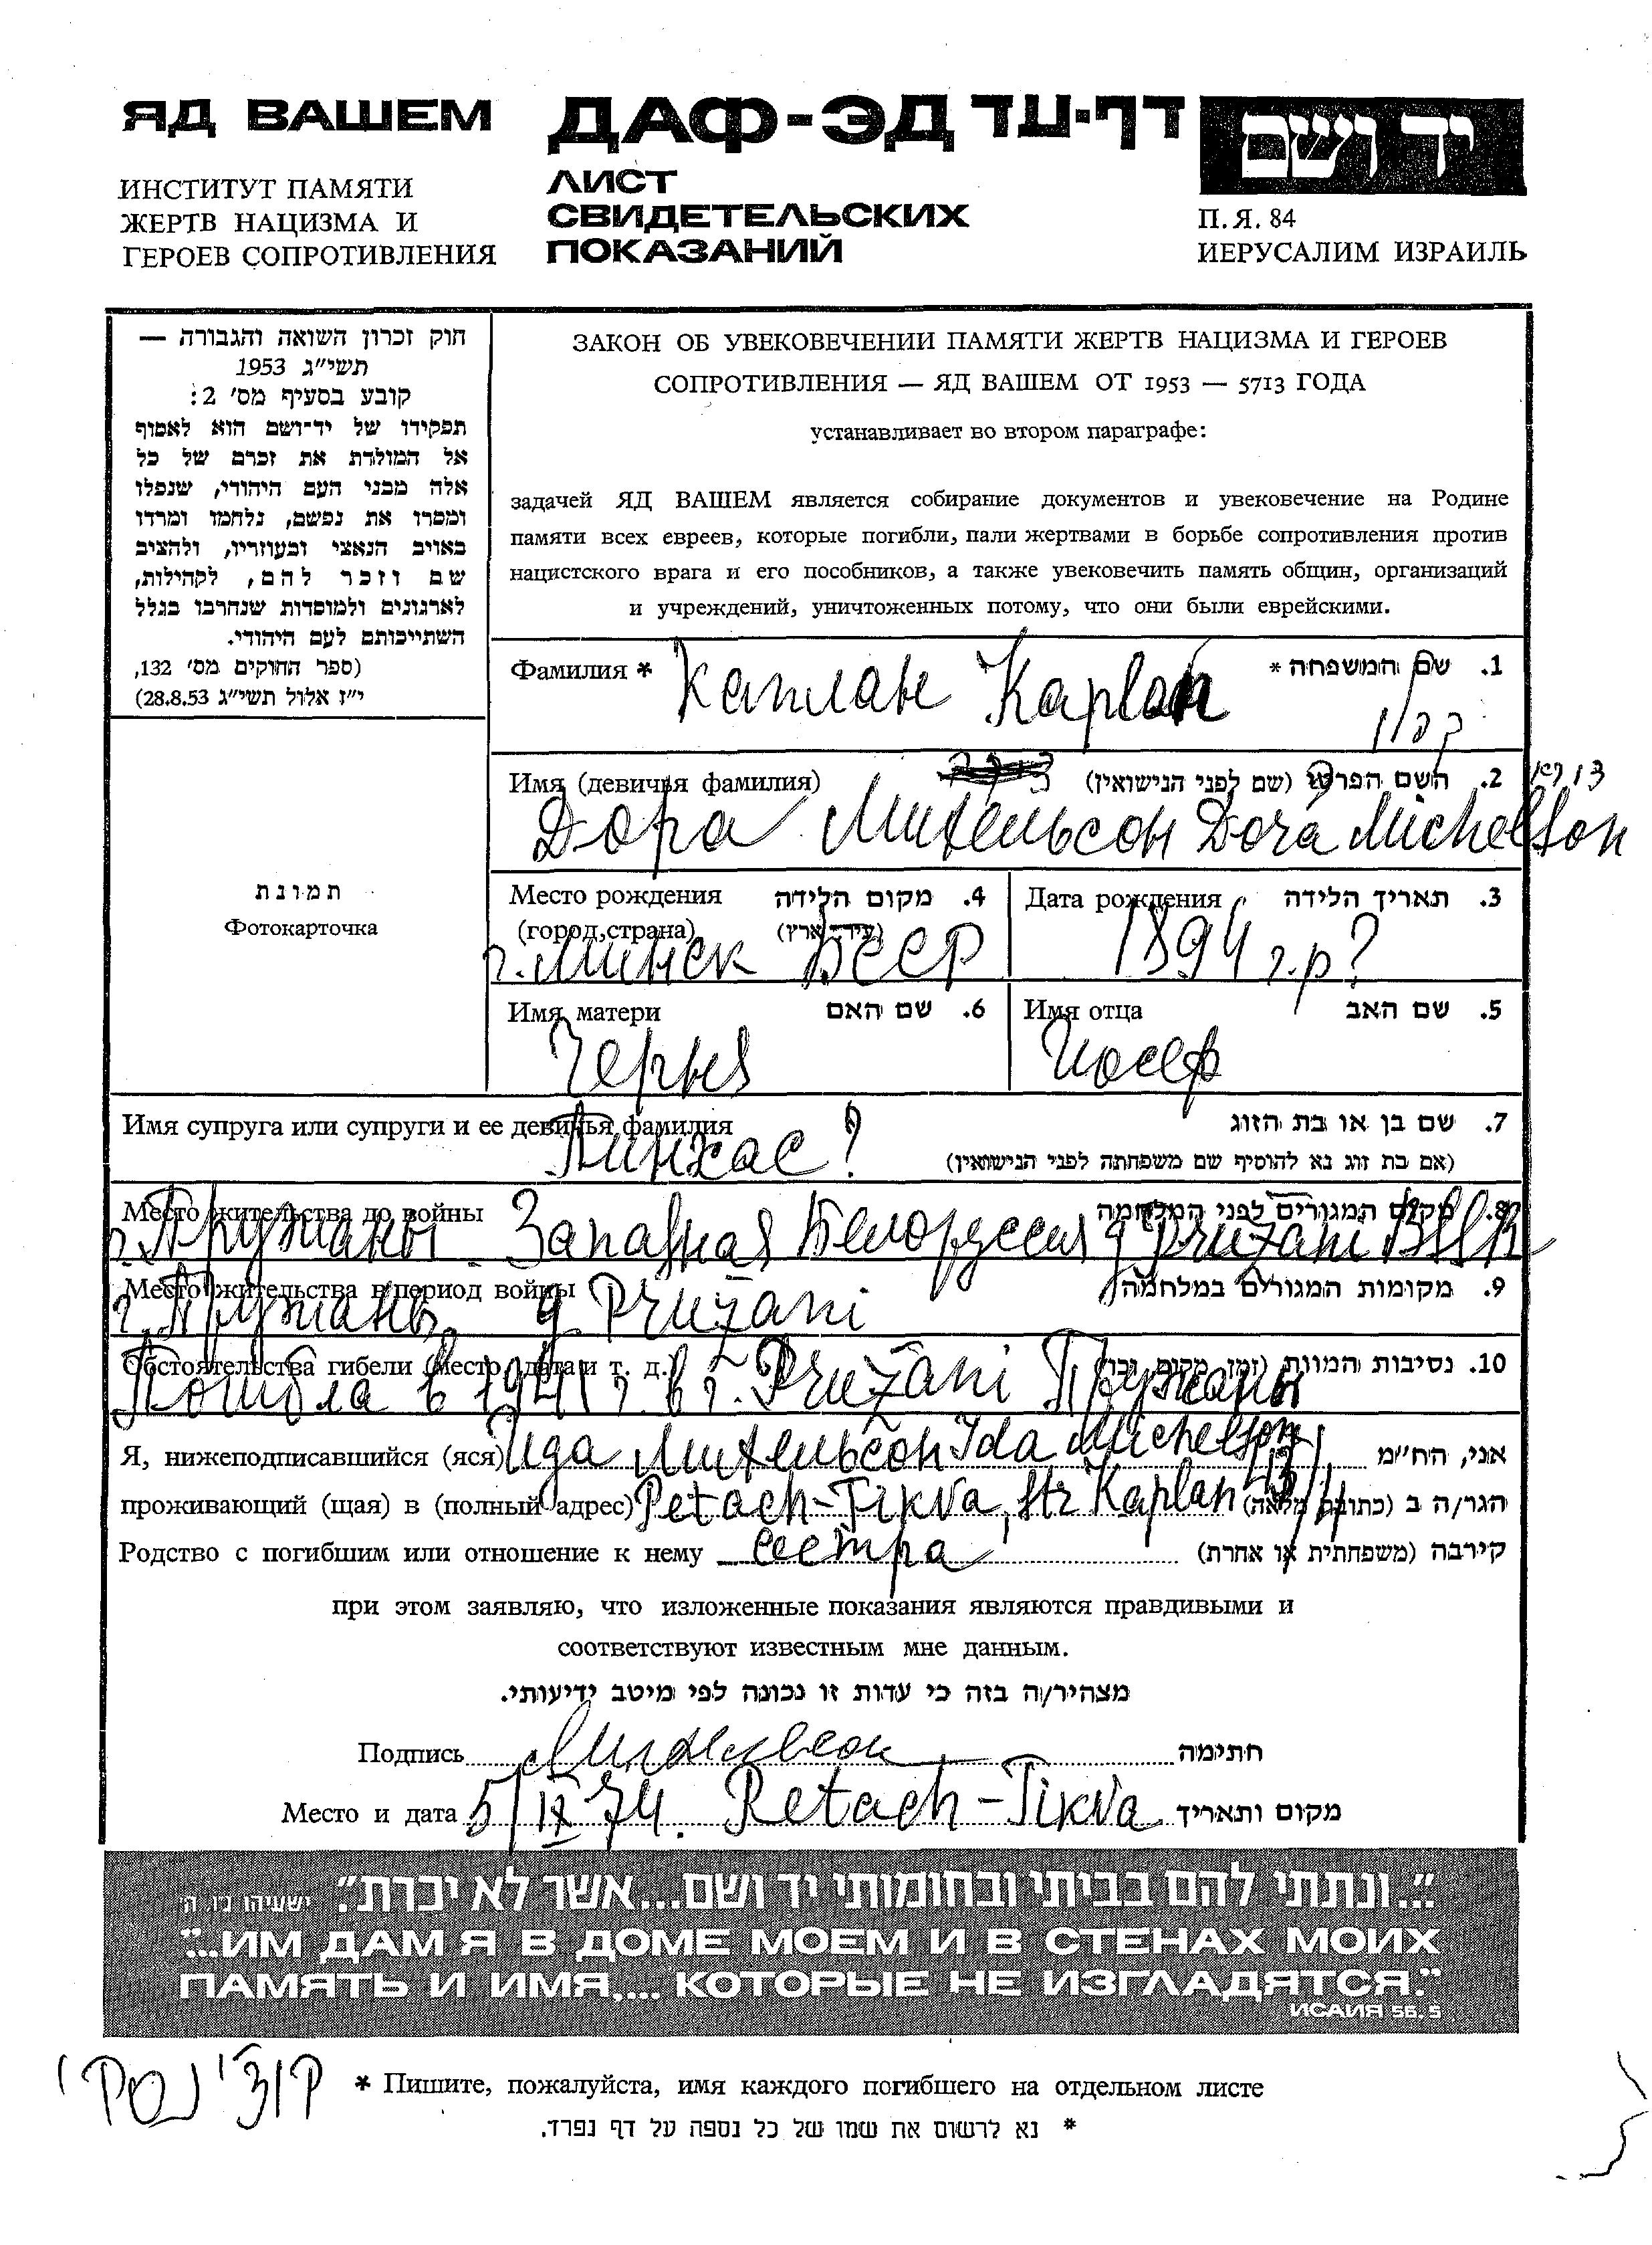 ЯД ВАШЕМ
ИНСТИТУТ ПАМЯТИ
ЖЕРТВ НАЦИЗМА И
ГЕРОЕВ СОПРОТИВЛЕНИЯ
ДАФ-ЭД דף-עד
ЛИСТ
СВИДЕТЕЛЬСКИХ
ПОКАЗАНИЙ
יד ושם
П.Я. 84
ИЕРУСАЛИМ ИЗРАИЛЬ
חוק זכרון השואה והגבורה —
תשי״ג 1953
קובע בסעיף מס׳ 2:
תפקידו של יד־ושם הוא לאסוף
אל המולדת את זכרם של כל
אלה מבני העם היהודי, שנפלו
ומסרו את נפשם, נלחמו ומרדו
באויב הנאצי ובעוזריו, ולהציב
שם וזכר להם, לקהילות,
לארגונים ולמוסדות שנחרבו בגלל
השתייכותם לעם היהודי.
(ספר החוקים מס׳ 132,
י״ז אלול תשי״ג 28.8.53)
תמונת
Фотокарточка
ЗАКОН ОБ УВЕКОВЕЧЕНИИ ПАМЯТИ ЖЕРТВ НАЦИЗМА И ГЕРОЕВ
СОПРОТИВЛЕНИЯ — ЯД ВАШЕМ ОТ 1953 — 5713 ГОДА
устанавливает во втором параграфе:
задачей ЯД ВАШЕМ является собирание документов и увековечение на Родине
памяти всех евреев, которые погибли, пали жертвами в борьбе сопротивления против
нацистского врага и его пособников, а также увековечить память общин, организаций
и учреждений, уничтоженных потому, что они были еврейскими.
Фамилия * 1. שם המשפחה *
Каплан Kaplan קפלן
Имя (девичья фамилия) 2. השם הפרטי (שם לפני הנישואין) דורא
Дора Михельсон Dora Michelson
Место рождения 4. מקום הלידה
(город, страна) (עיר, ארץ)
г. Минск БССР
Дата рождения 3. תאריך הלידה
1894 г.р?
Имя матери 6. שם האם
Черня
Имя отца 5. שם האב
Иосеф
Имя супруга или супруги и ее девичья фамилия 7. שם בן או בת הזוג
(אם בת זוג נא להוסיף שם משפחתה לפני הנישואין)
Пинхас?
Место жительства до войны 8. מקום המגורים לפני המלחמה
г. Пружаны Западная Белоруссия g Pružani
Место жительства в период войны 9. מקומות המגורים במלחמה
г. Пружаны g. Pružani
Обстоятельства гибели (место, дата и т. д.) 10. נסיבות המוות (זמן, מקום וכו׳)
Погибла в 1941 г. в г. Pružani Пружаны
Я, нижеподписавшийся (яся) Ида Михельсон Ida Michelson אני, הח״מ
проживающий (щая) в (полный адрес) Petach-Tikva, str Kaplan הגר/ה ב (כתובת מלאה)
Родство с погибшим или отношение к нему сестра קירבה (משפחתית או אחרת)
при этом заявляю, что изложенные показания являются правдивыми и
соответствуют известным мне данным.
מצהיר/ה בזה כי עדות זו נכונה לפי מיטב ידיעותי.
Подпись Михельсон חתימה
Место и дата 5/IX 74. Petach-Tikva מקום ותאריך
״...ונתתי להם בביתי ובחומותי יד ושם...אשר לא יכרת״. ישעיהו נ״ו, ה׳
"...ИМ ДАМ Я В ДОМЕ МОЕМ И В СТЕНАХ МОИХ
ПАМЯТЬ И ИМЯ,... КОТОРЫЕ НЕ ИЗГЛАДЯТСЯ."
ИСАИЯ 56. 5
* Пишите, пожалуйста, имя каждого погибшего на отдельном листе
* נא לרשום את שמו של כל נספה על דף נפרד.